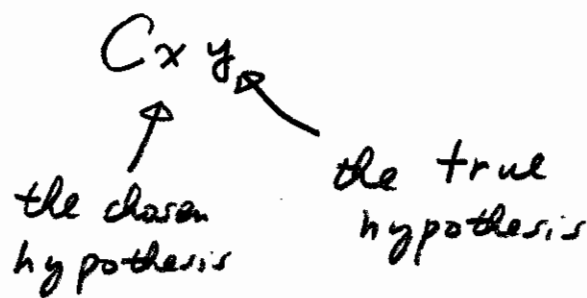 Cxy
the chosen
hypothesis
the true
hypothesis